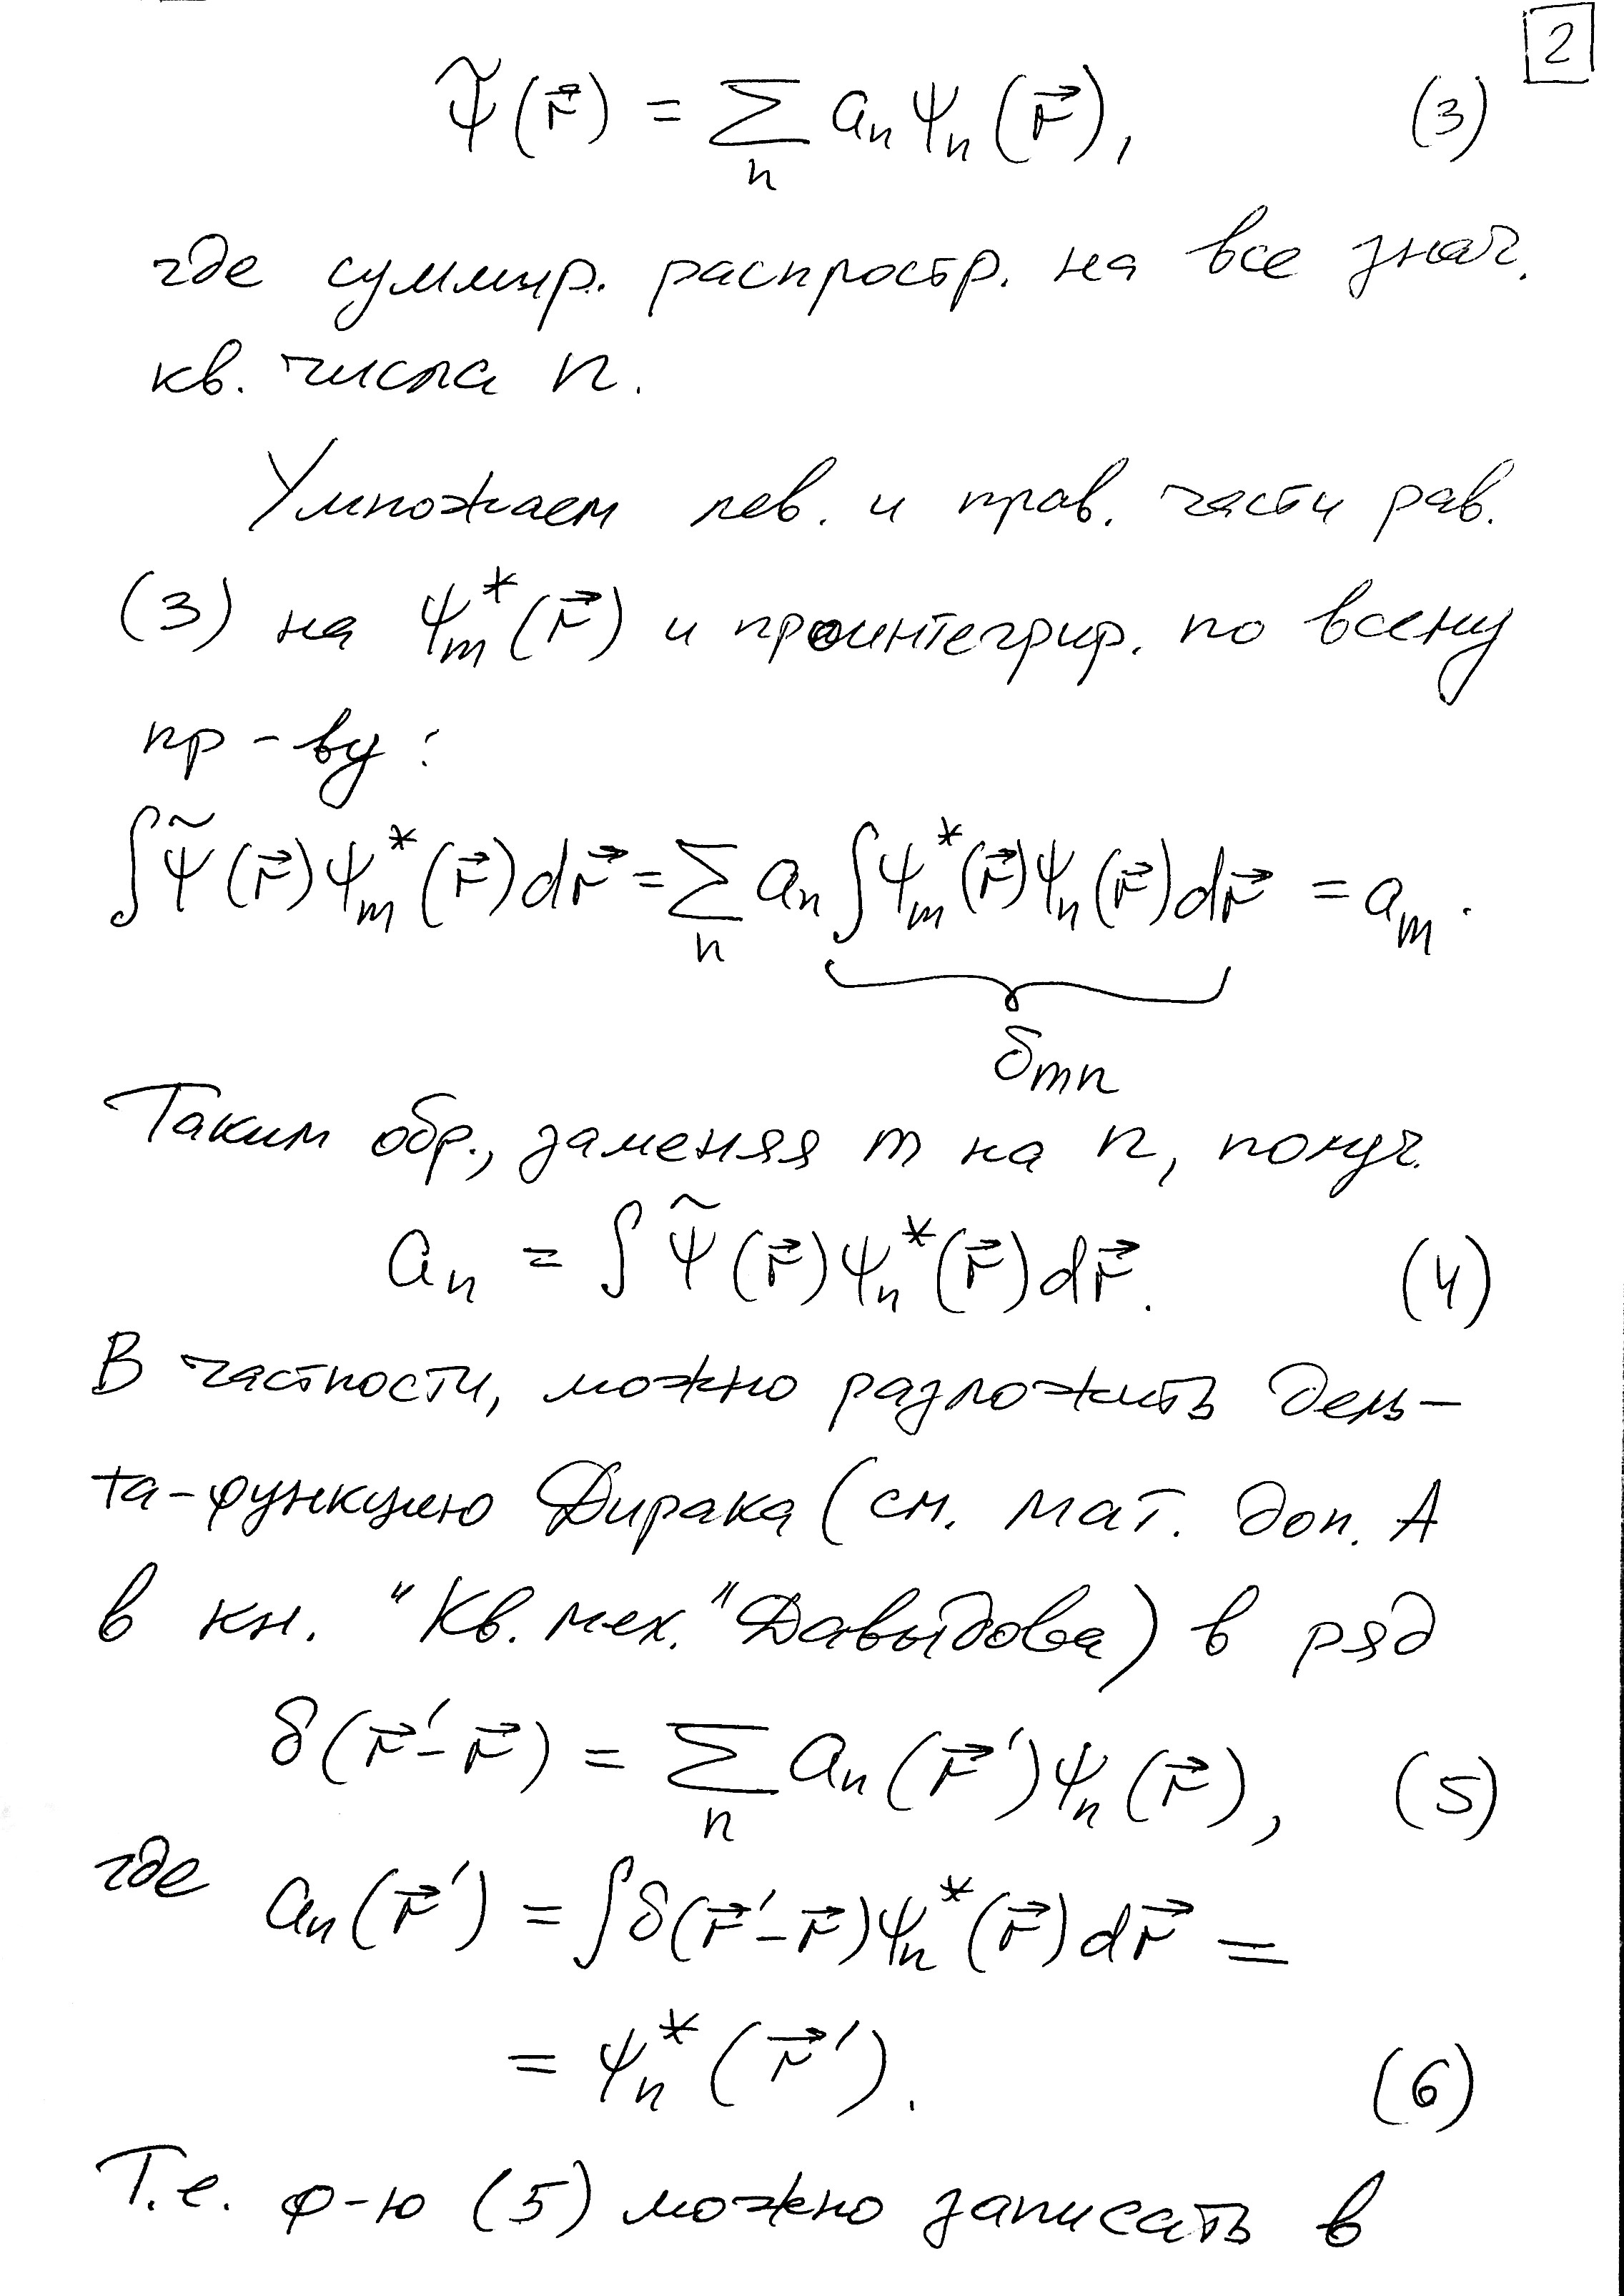 2
ψ̃(r⃗) = Σ_n a_n ψ_n(r⃗), (3)
где суммир. распростр. на все знач.
кв. числа n.
Умножаем лев. и прав. части рав.
(3) на ψ_m^*(r⃗) и проинтегрир. по всему
пр-ву:
∫ψ̃(r⃗)ψ_m^*(r⃗)dr⃗ = Σ_n a_n ∫ψ_m^*(r⃗)ψ_n(r⃗)dr⃗ = a_m.
δ_mn
Таким обр., заменяя m на n, получ.
a_n = ∫ψ̃(r⃗)ψ_n^*(r⃗)dr⃗. (4)
В частности, можно разложить дель-
та-функцию Дирака (см. мат. доп. А
в кн. "Кв. мех." Давыдова) в ряд
δ(r⃗'-r⃗) = Σ_n a_n(r⃗')ψ_n(r⃗), (5)
где a_n(r⃗') = ∫δ(r⃗'-r⃗)ψ_n^*(r⃗)dr⃗ =
= ψ_n^*(r⃗'). (6)
Т.е. ф-ю (5) можно записать в